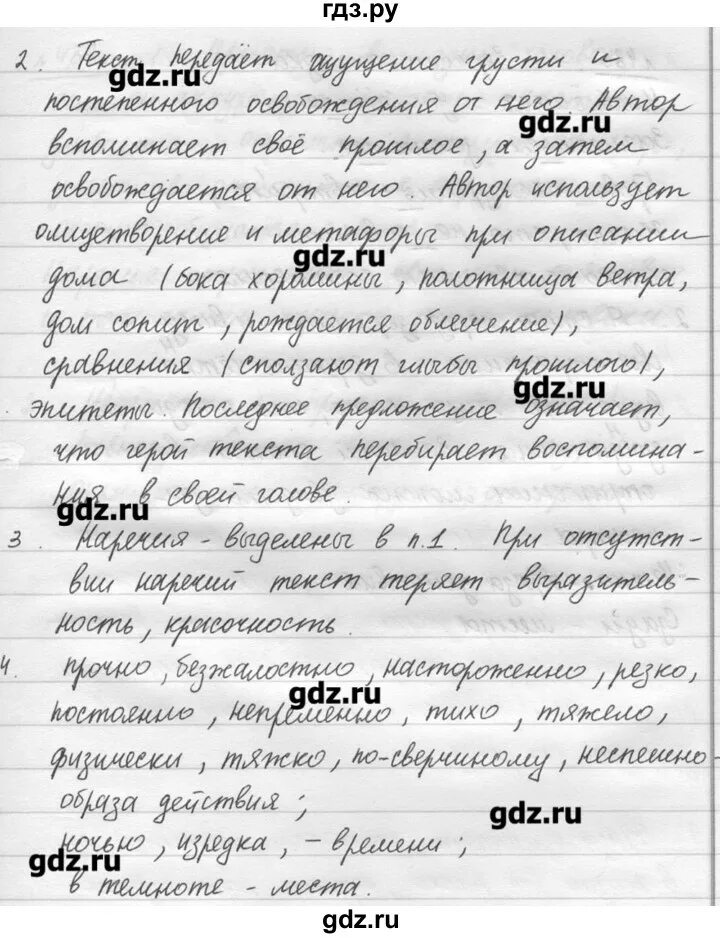 гдз.ру
2. Текст передаёт ощущение грусти и
gdz.ru
постепенного освобождения от него. Автор
gdz.ru
вспоминает своё прошлое, а затем
освобождается от него. Автор использует
олицетворение и метафоры при описании
gdz.ru
дома (бока хоромины, полотнища ветра,
дом сопит, рождается облегчение),
сравнения (сползают глыбы прошлого),
gdz.ru
эпитеты. Последнее предложение означает,
что герой текста перебирает воспомина-
ния в своей голове.
gdz.ru
3. Наречия - выделены в п.1. При отсутст-
вии наречий текст теряет выразитель-
ность, красочность.
4. прочно, безжалостно, настороженно, резко,
gdz.ru
постоянно, непременно, тихо, тяжело,
физически, тяжко, по-сверчиному, неспешно -
образа действия;
gdz.ru
ночью, изредка, - времени;
gdz.ru
в темноте - места.
gdz.ru